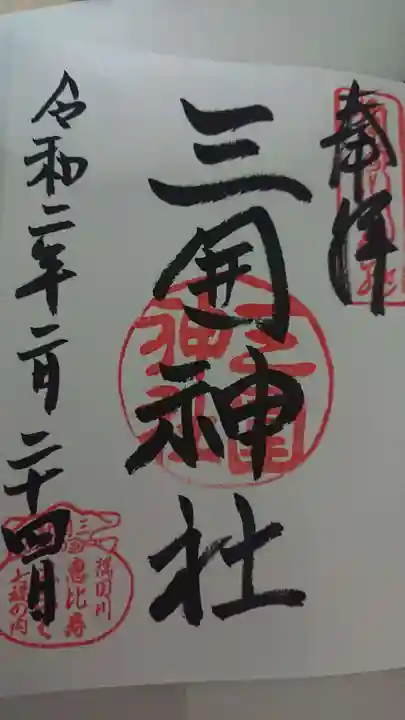 奉拝
三囲神社
令和二年二月二十四日
三囲
恵比寿
隅田川